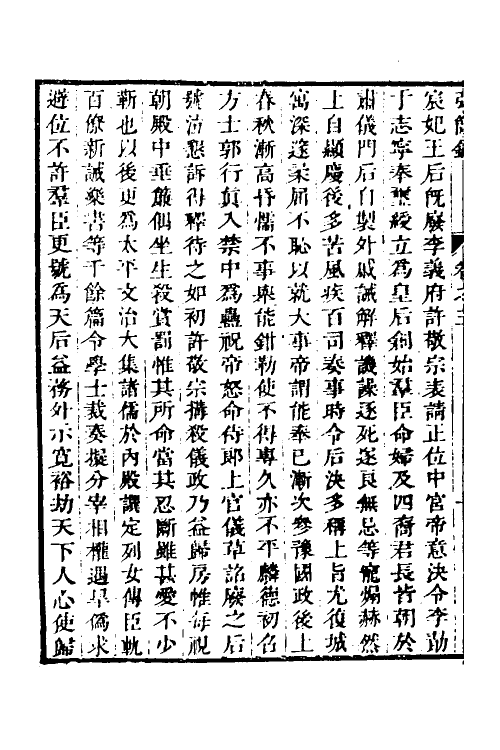 宸妃王后旣廢李義府許敬宗表請正位中宮帝意決令李勣
于志寧奉璽綬立爲皇后創始羣臣命婦及四裔君長皆朝於
肅儀門后自製外戚誡解釋譏譟逐死遂良無忌等寵煽赫然
上自顯慶後多苦風疾百司奏事時令后決多稱上旨尤復城
寓深遂柔屈不恥以就大事帝謂能奉已漸次參豫國政後上
春秋漸高昏懦不事輿能鉗勒使不得專久亦不平麟德初名
方士郭行真入禁中爲蠱祝帝怒命侍郎上官儀草詔廢之后
號泣懇訴得釋待之如初許敬宗搆殺儀政乃益歸房帷每視
朝殿中垂簾偶坐生殺賞罰惟其所命當其忍斷雖甚愛不少
靳也以後更爲太平文治大集諸儒於內殿譔定列女傳臣軌
百僚新誡樂書等千餘篇令學士裁奏擬分宰相權遇旱僞求
避位不許羣臣更號爲天后益務外示寬裕劫天下人心使歸